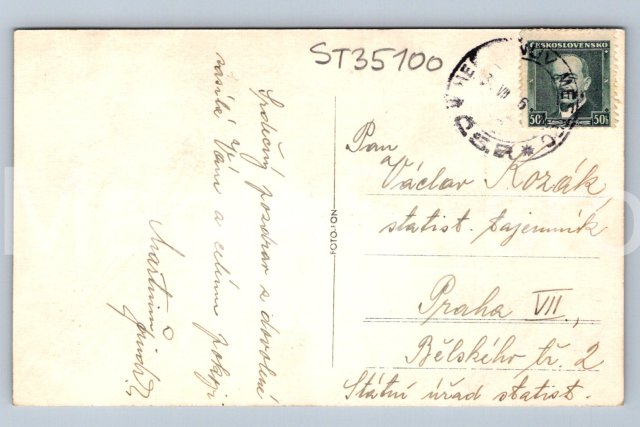 ST35100
ČESKOSLOVENSKO
50h 50h
ČSR
Srdečný pozdrav z dovolené
zasílá Vám a celému pokoji
FOTOFON
Pan
Václav Kozák
statist. tajemník
Praha VII,
Bělského tř. 2
Státní úřad statist.